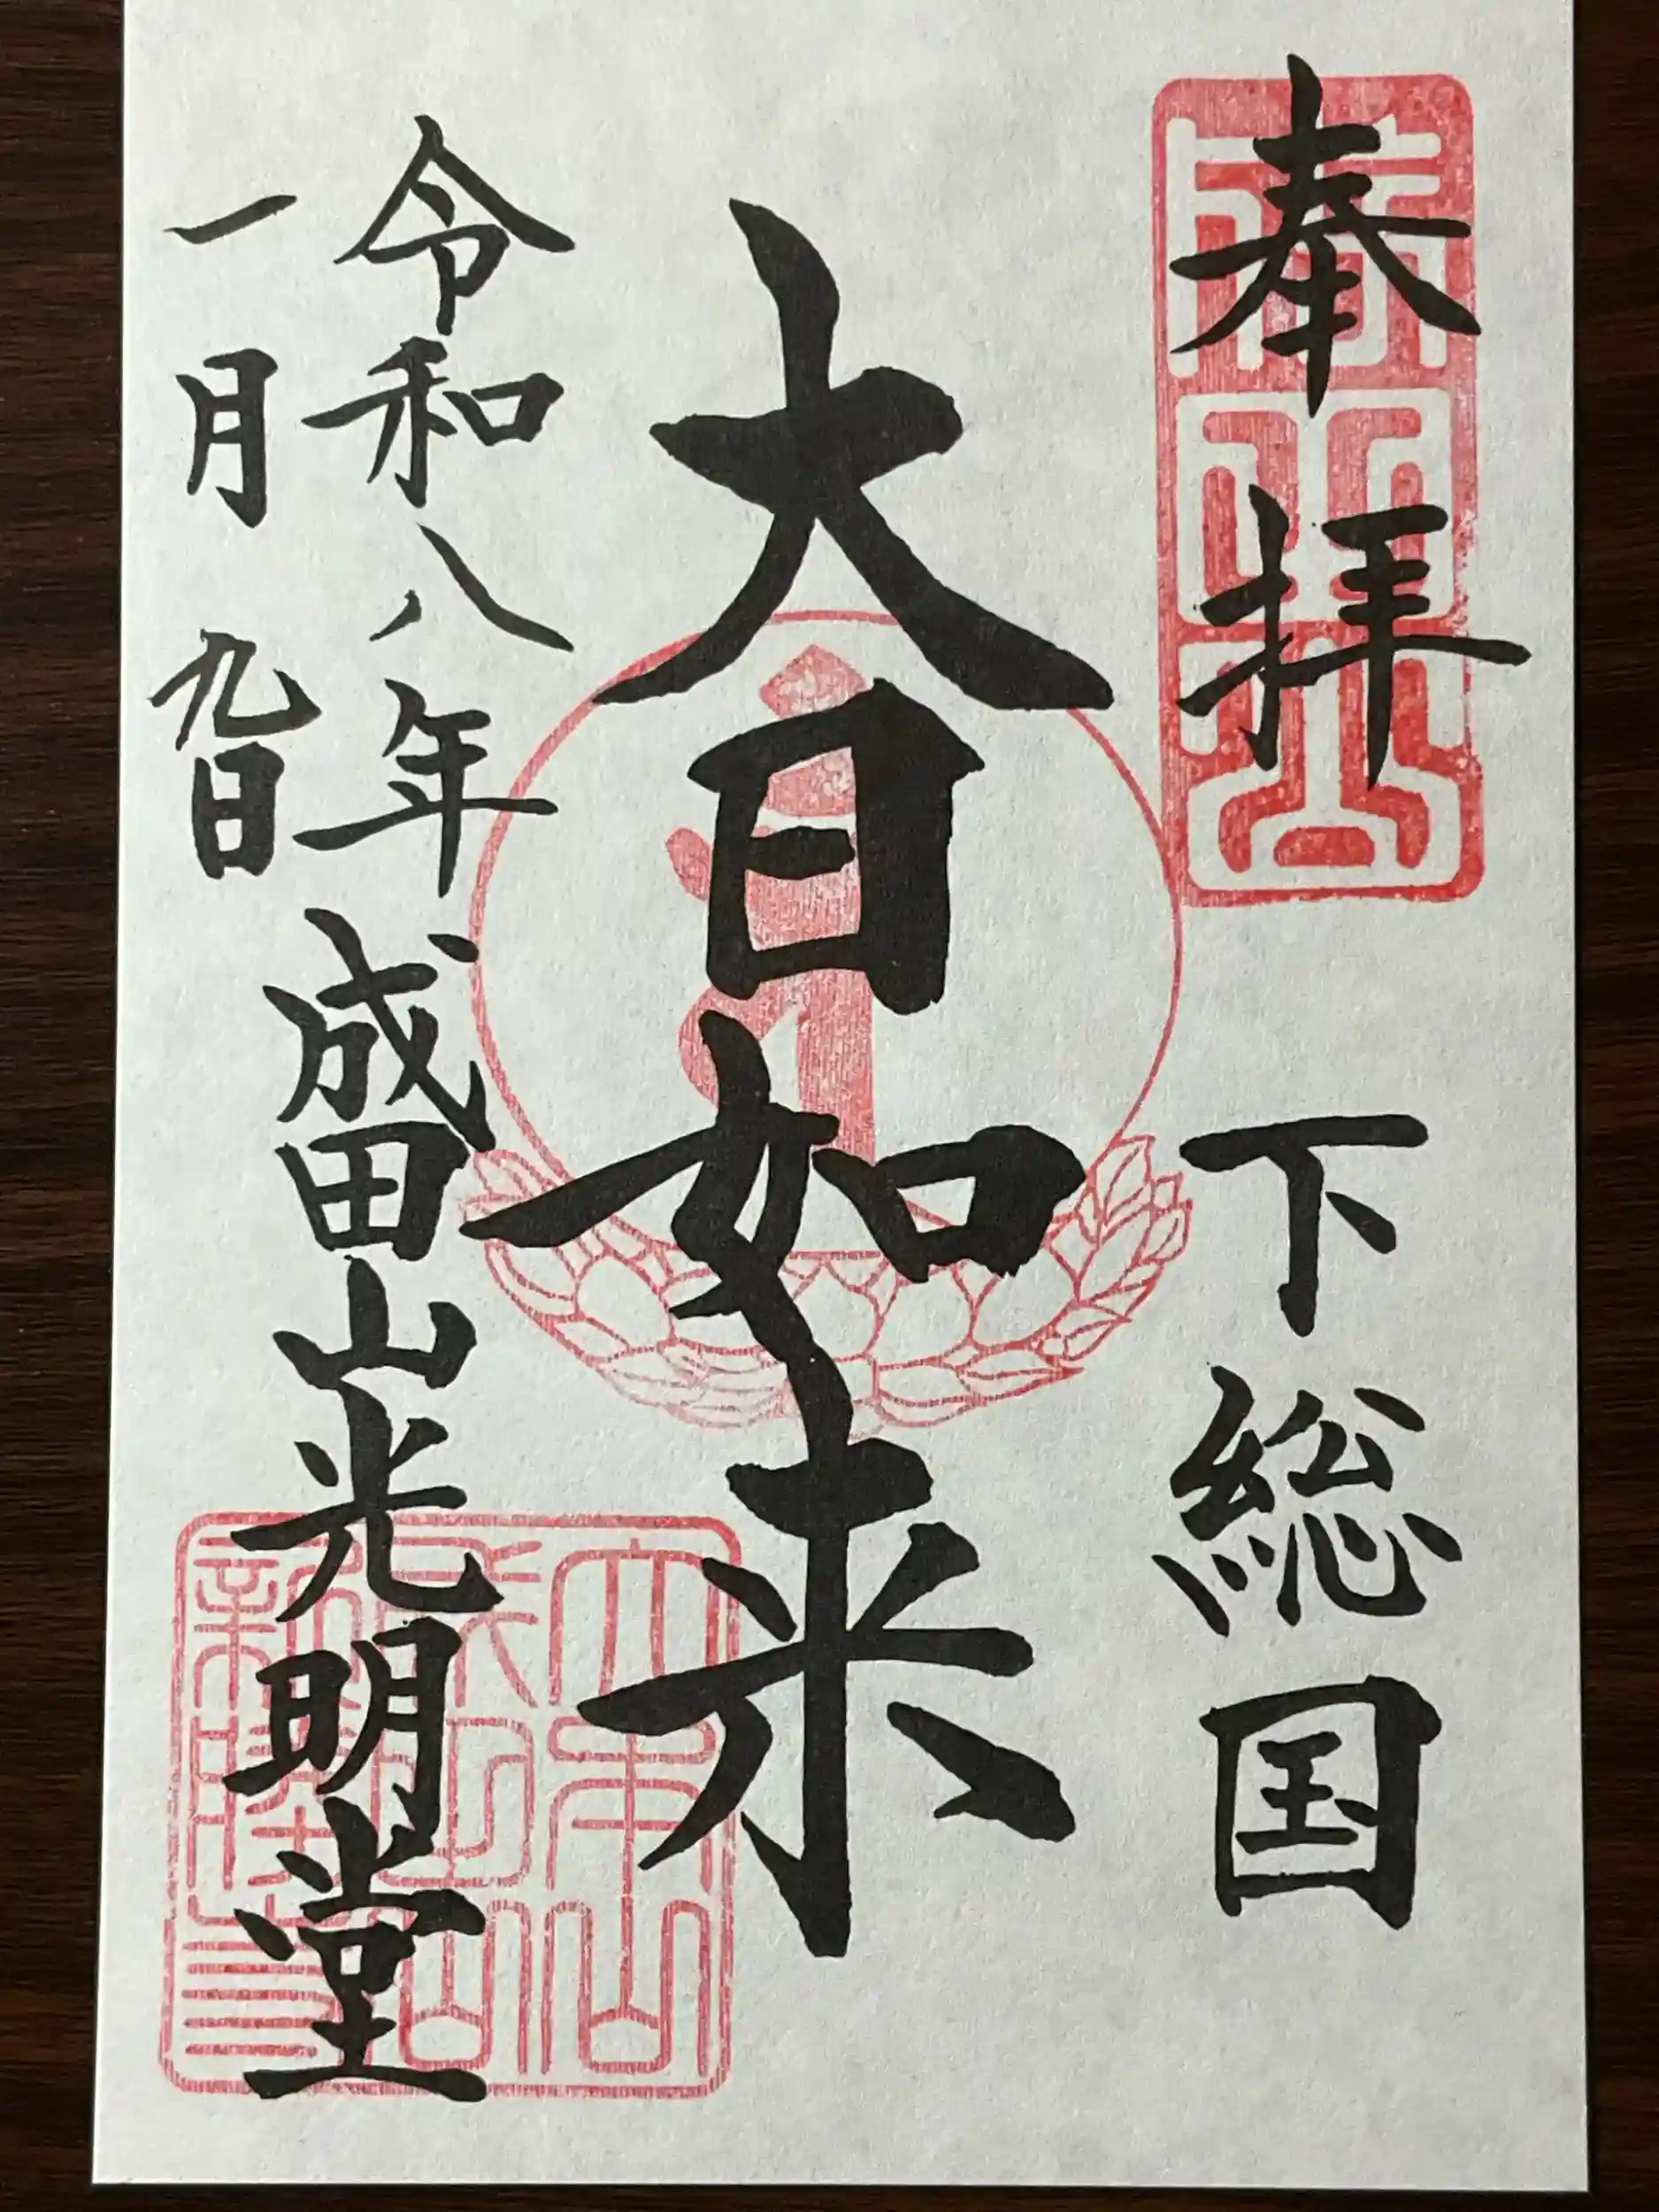 奉拝
下総国
大日如来
令和八年
一月九日
成田山光明堂
成田山